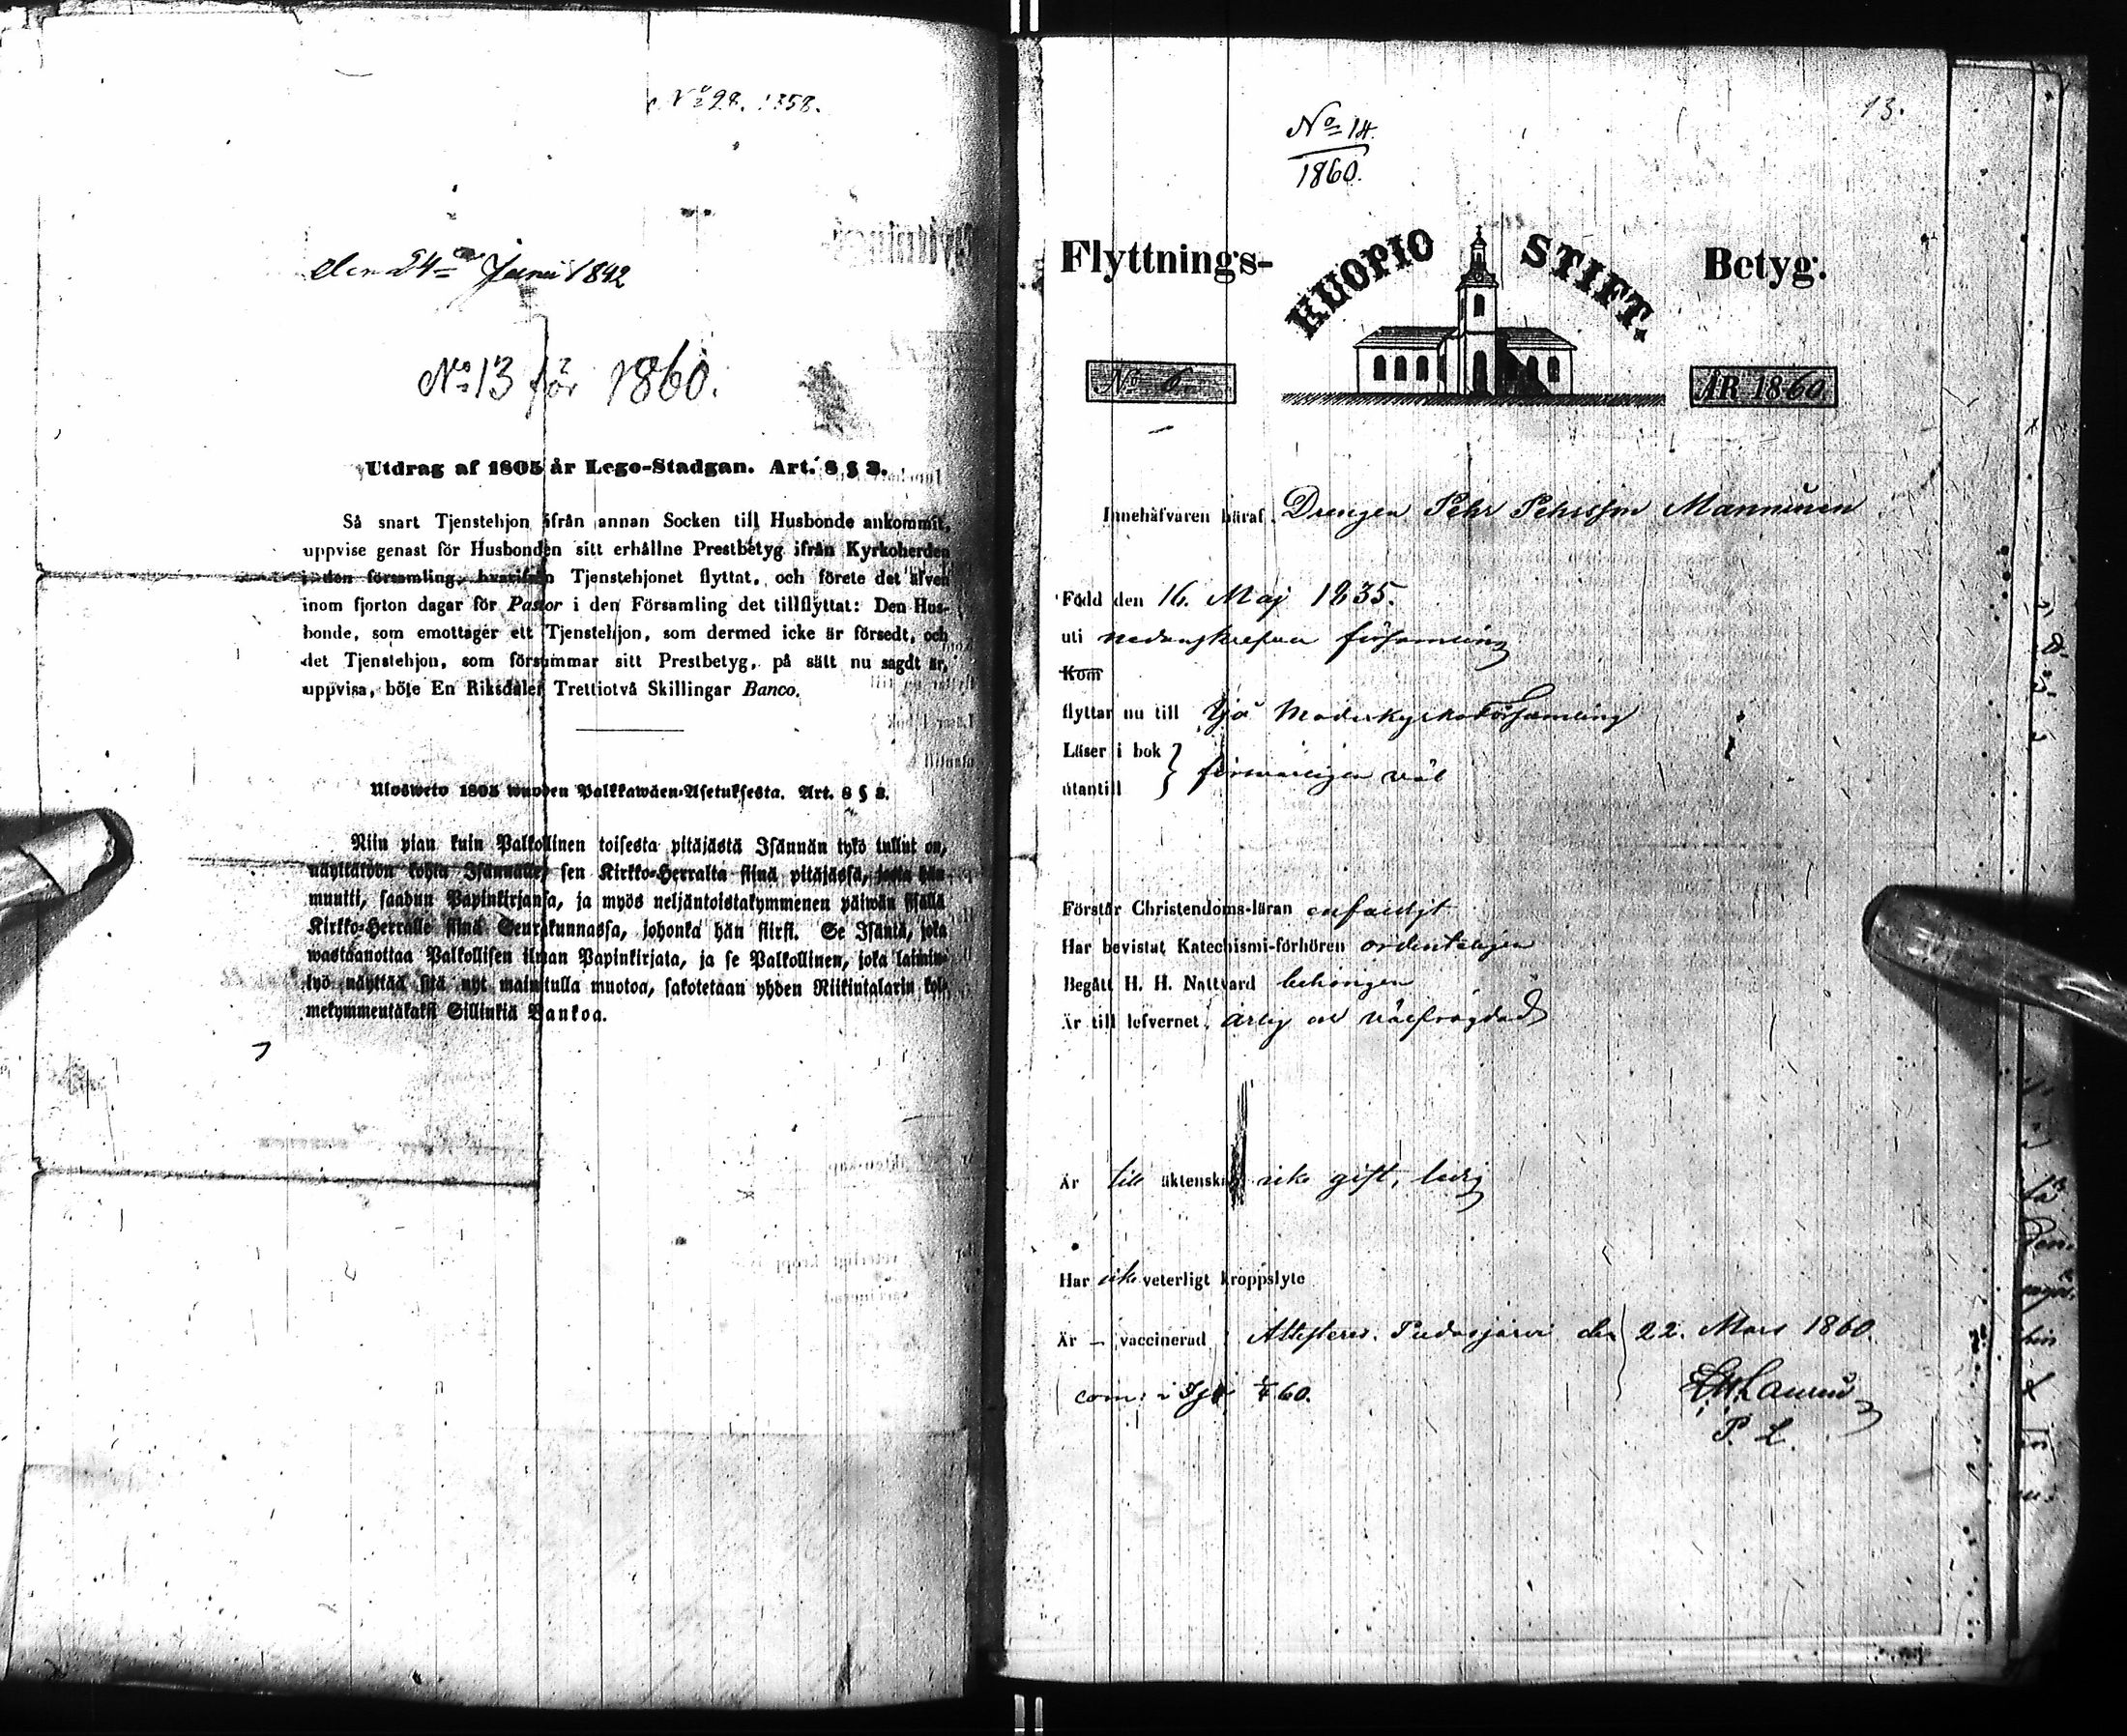 No 28. 1858.
den 24 Juni 1842
No 13 för 1860.
Utdrag af 1805 år Lego-Stadgan. Art. 8 § 3.
Så snart Tjenstehjon ifrån annan Socken till Husbonde ankommit,
uppvise genast för Husbonden sitt erhållne Prestbetyg ifrån Kyrkoherden
i den församling, hvarifrån Tjenstehjonet flyttat, och förete det äfven
inom fjorton dagar för Pastor i den Församling det tillflyttat: Den Hus-
bonde, som emottager ett Tjenstehjon, som dermed icke är försedt, och
det Tjenstehjon, som försummar sitt Prestbetyg, på sätt nu sagdt är,
uppvisa, böte En Riksdaler Trettiotvå Skillingar Banco.
Ulosweto 1805 wuoden Palkkawäen-Asetuksesta. Art. 8 § 3.
Niin pian kuin Palkollinen toisesta pitäjästä Isännän tykö tullut on,
näyttäköön kohta Isännälle, sen Kirkko-Herralta siinä pitäjässä, josta hän
muutti, saadun Papinkirjansa, ja myös neljäntoistakymmenen päiwän sisällä
Kirkko-Herralle siinä Seurakunnassa, johonka hän siirsi. Se Isäntä, joka
wastaanottaa Palkollisen ilman Papinkirjata, ja se Palkollinen, joka laimin-
lyö näyttää sitä nyt mainitulla muotoa, sakotetaan yhden Riikintalarin kol-
mekymmentäkaksi Sillinkiä Bankoa.
13.
No 14.
1860.
Flyttnings- KUOPIO STIFT. Betyg.
No 6. ÅR 1860.
Innehafvaren häraf, Drengen Pehr Pehrsson Manninen
Född den 16. Maj 1835.
uti nedanskrefna församling
Kom
flyttar nu till Ijo Moderkyrko Församling
Läser i bok
utantill } försvarligen väl
Förstår Christendoms-läran enfaldigt
Har bevistat Katechismi-förhören ordenteligen
Begått H. H. Nattvard behörigen
Är till lefvernet, ärlig och välfrägdad
Är till äktenskap icke gift, ledig
Har icke veterligt kroppslyte
Är – vaccinerad; Attesteras. Pudasjärvi den 22. Mars 1860.
com: i Ijo 60.
P. L.